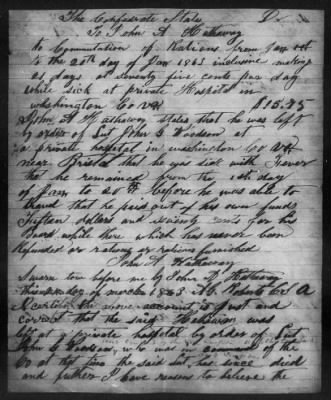 The Confederate States Dr
To John A Hathaway
to Commutation of Rations from Jan
to the 20th day of Jan 1863 inclusive making
21 days at seventy five cents per day
while sick at private Hospital in
Washington Co Va $15.75
John A Hathaway states that he was left
by order of Lut John G Woodson at
a private hospital in Washington Co Va
near Bristol that he was sick with Fever
that he remained from the day
of Jan to 20th before he was able to
travel that he paid out of his own funds
Fifteen dollars and seventy cents for his
Board while there which has never been
Refunded or rations furnished
John A Hathaway
Sworn too before me by John A Hathaway
this day of March 1863
I certify the above account is just and
correct that the said Hathaway was
left at a private hospital by order of Lut
John G Woodson, who was in command of the
Co at that time the said Lut has since died
and futher I have reasons to believe the